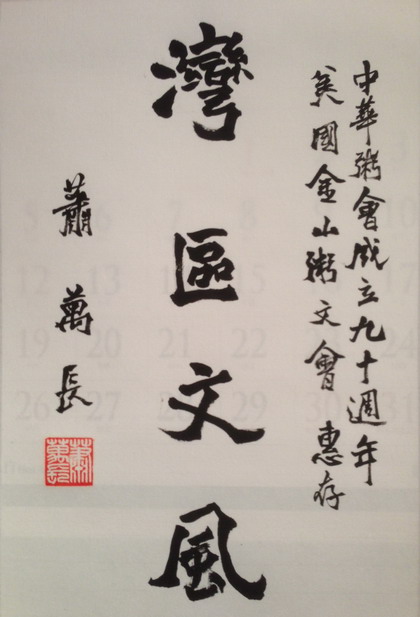 中華粥會成立九十週年
美國金山粥文會 惠存
灣區文風
蕭萬長
蕭萬長